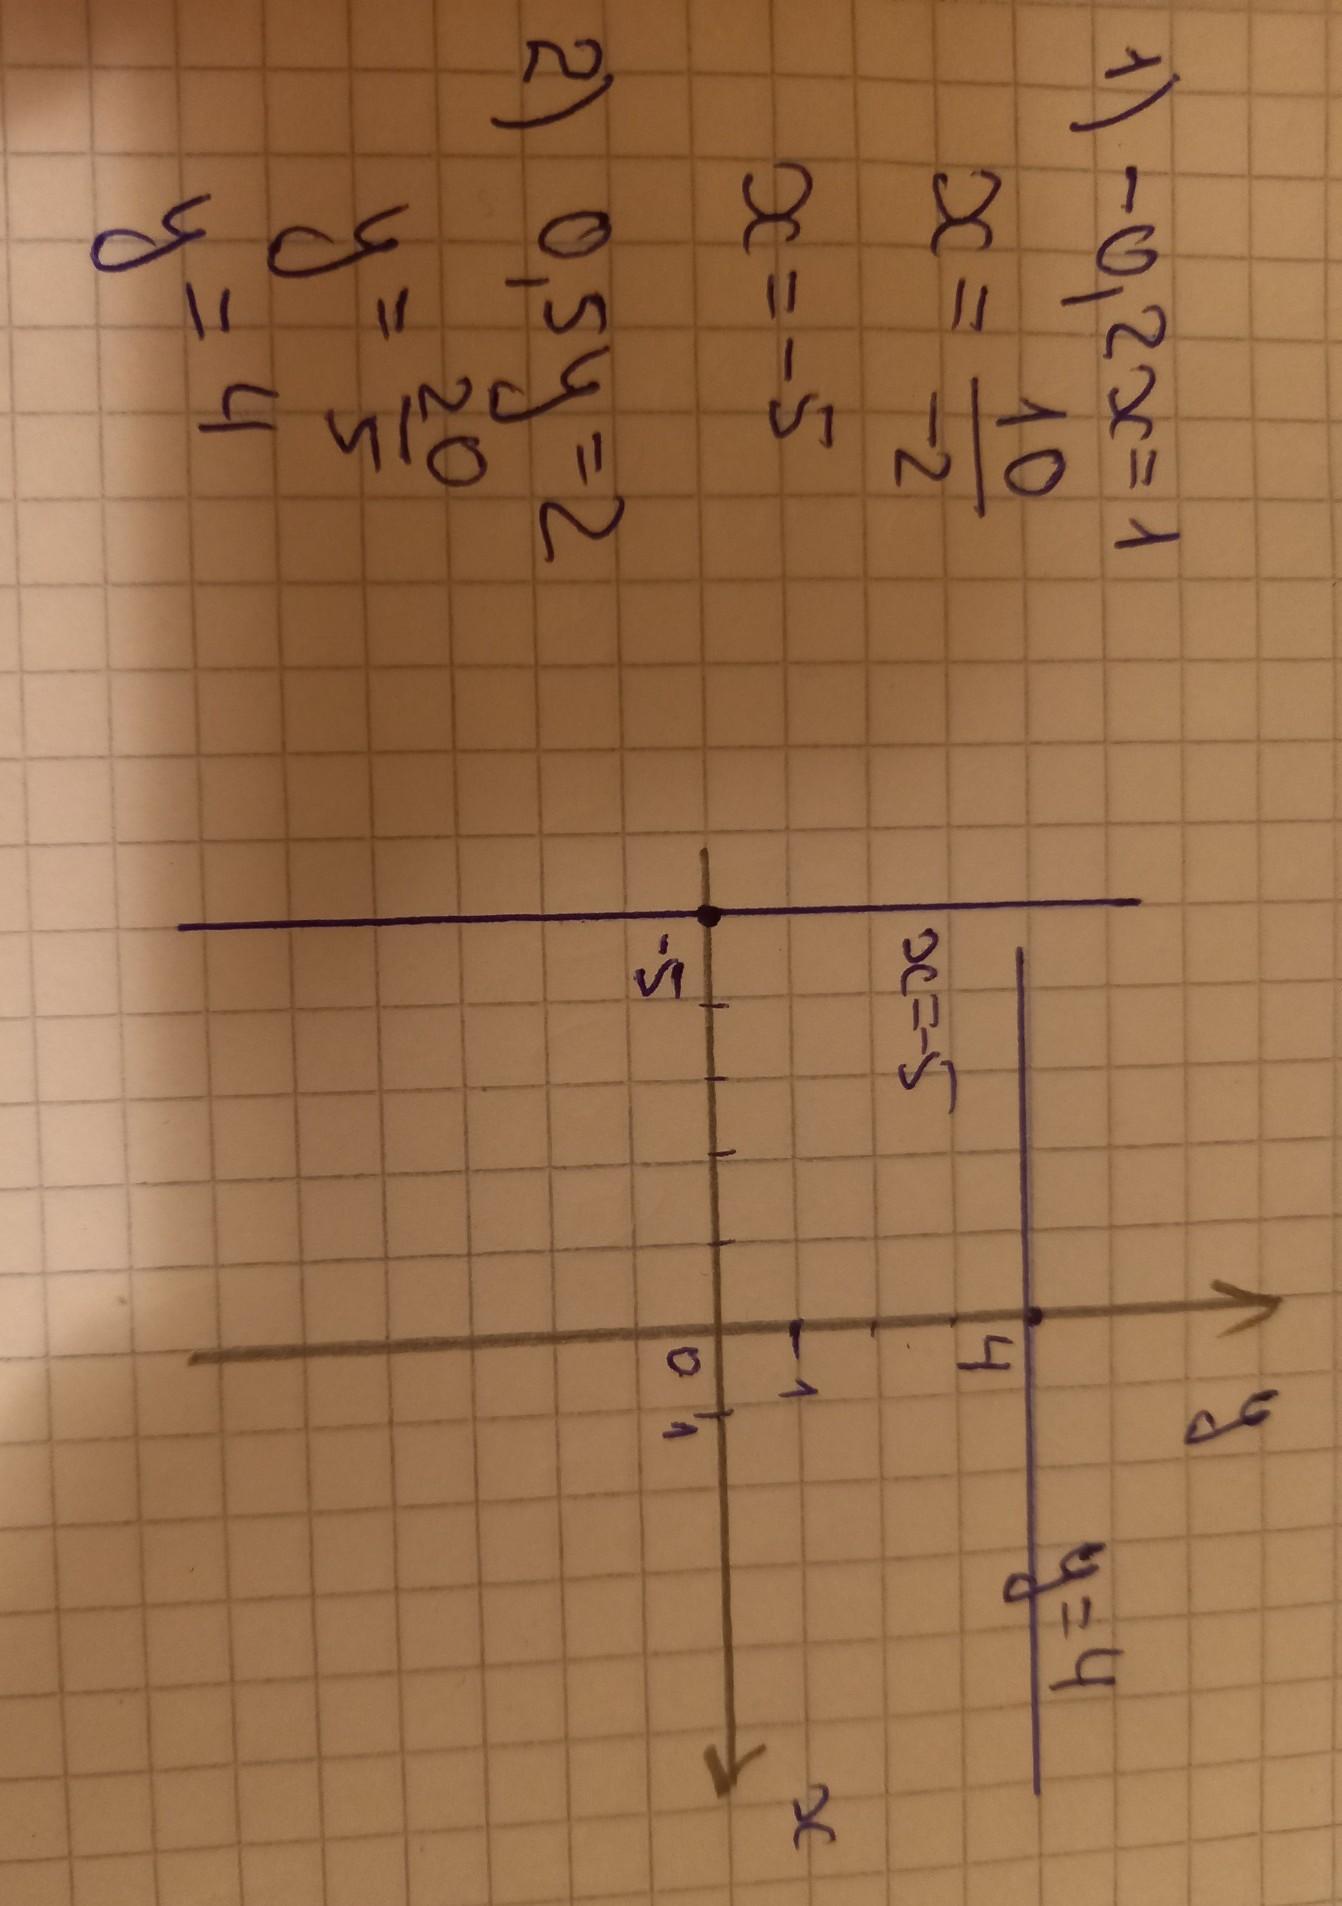 1) -0,2x=1
x = 10/-2
x = -5
2) 0,5y = 2
y = 20/5
y = 4
y
y=4
4
x=-5
1
x
-5
0
1